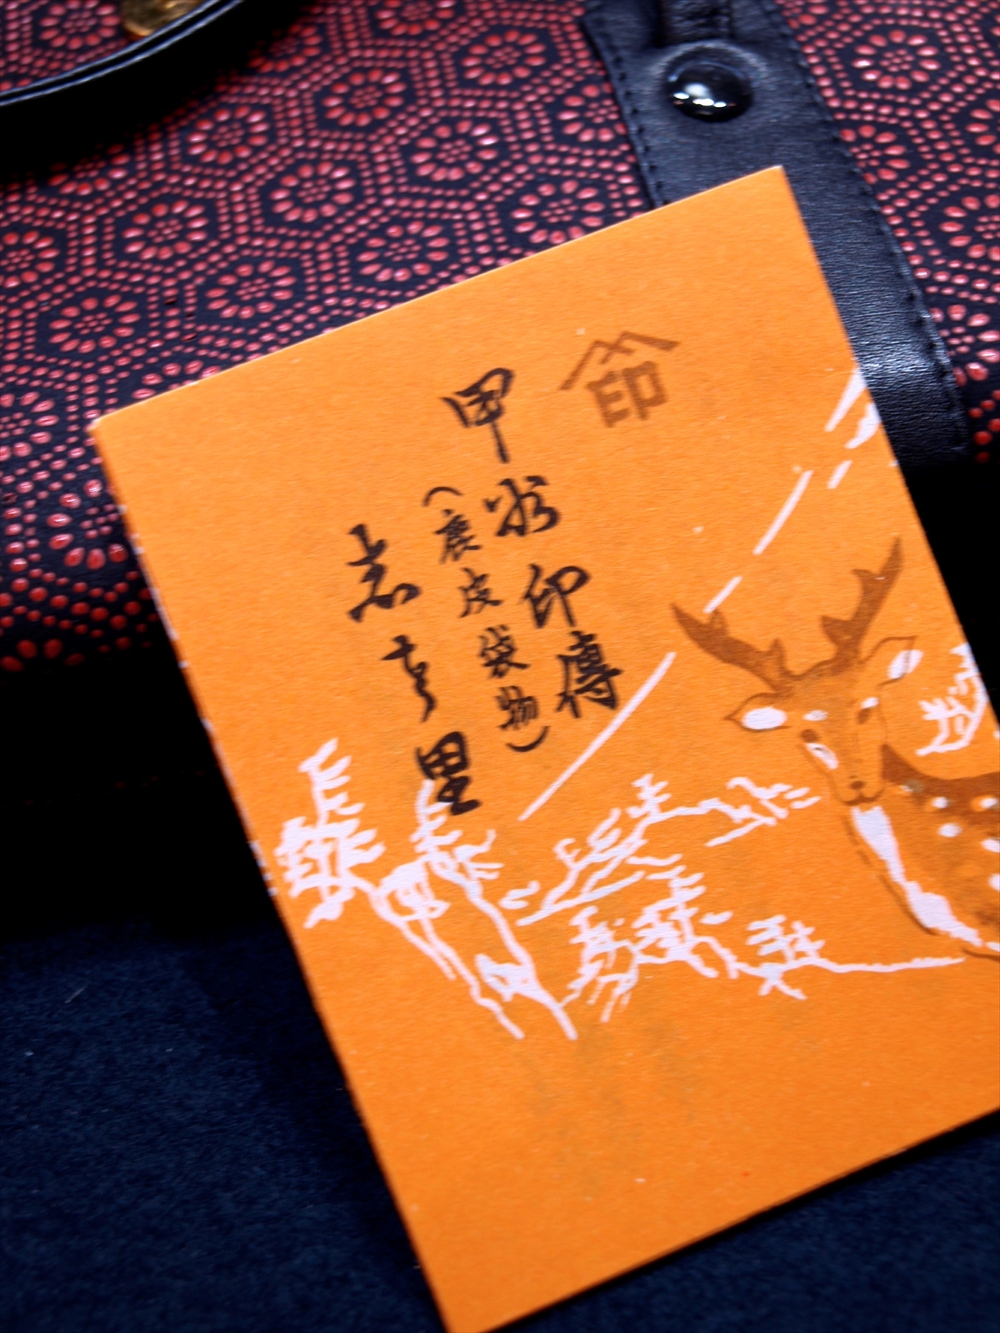 印
甲州印傳
(鹿皮袋物)
志を里